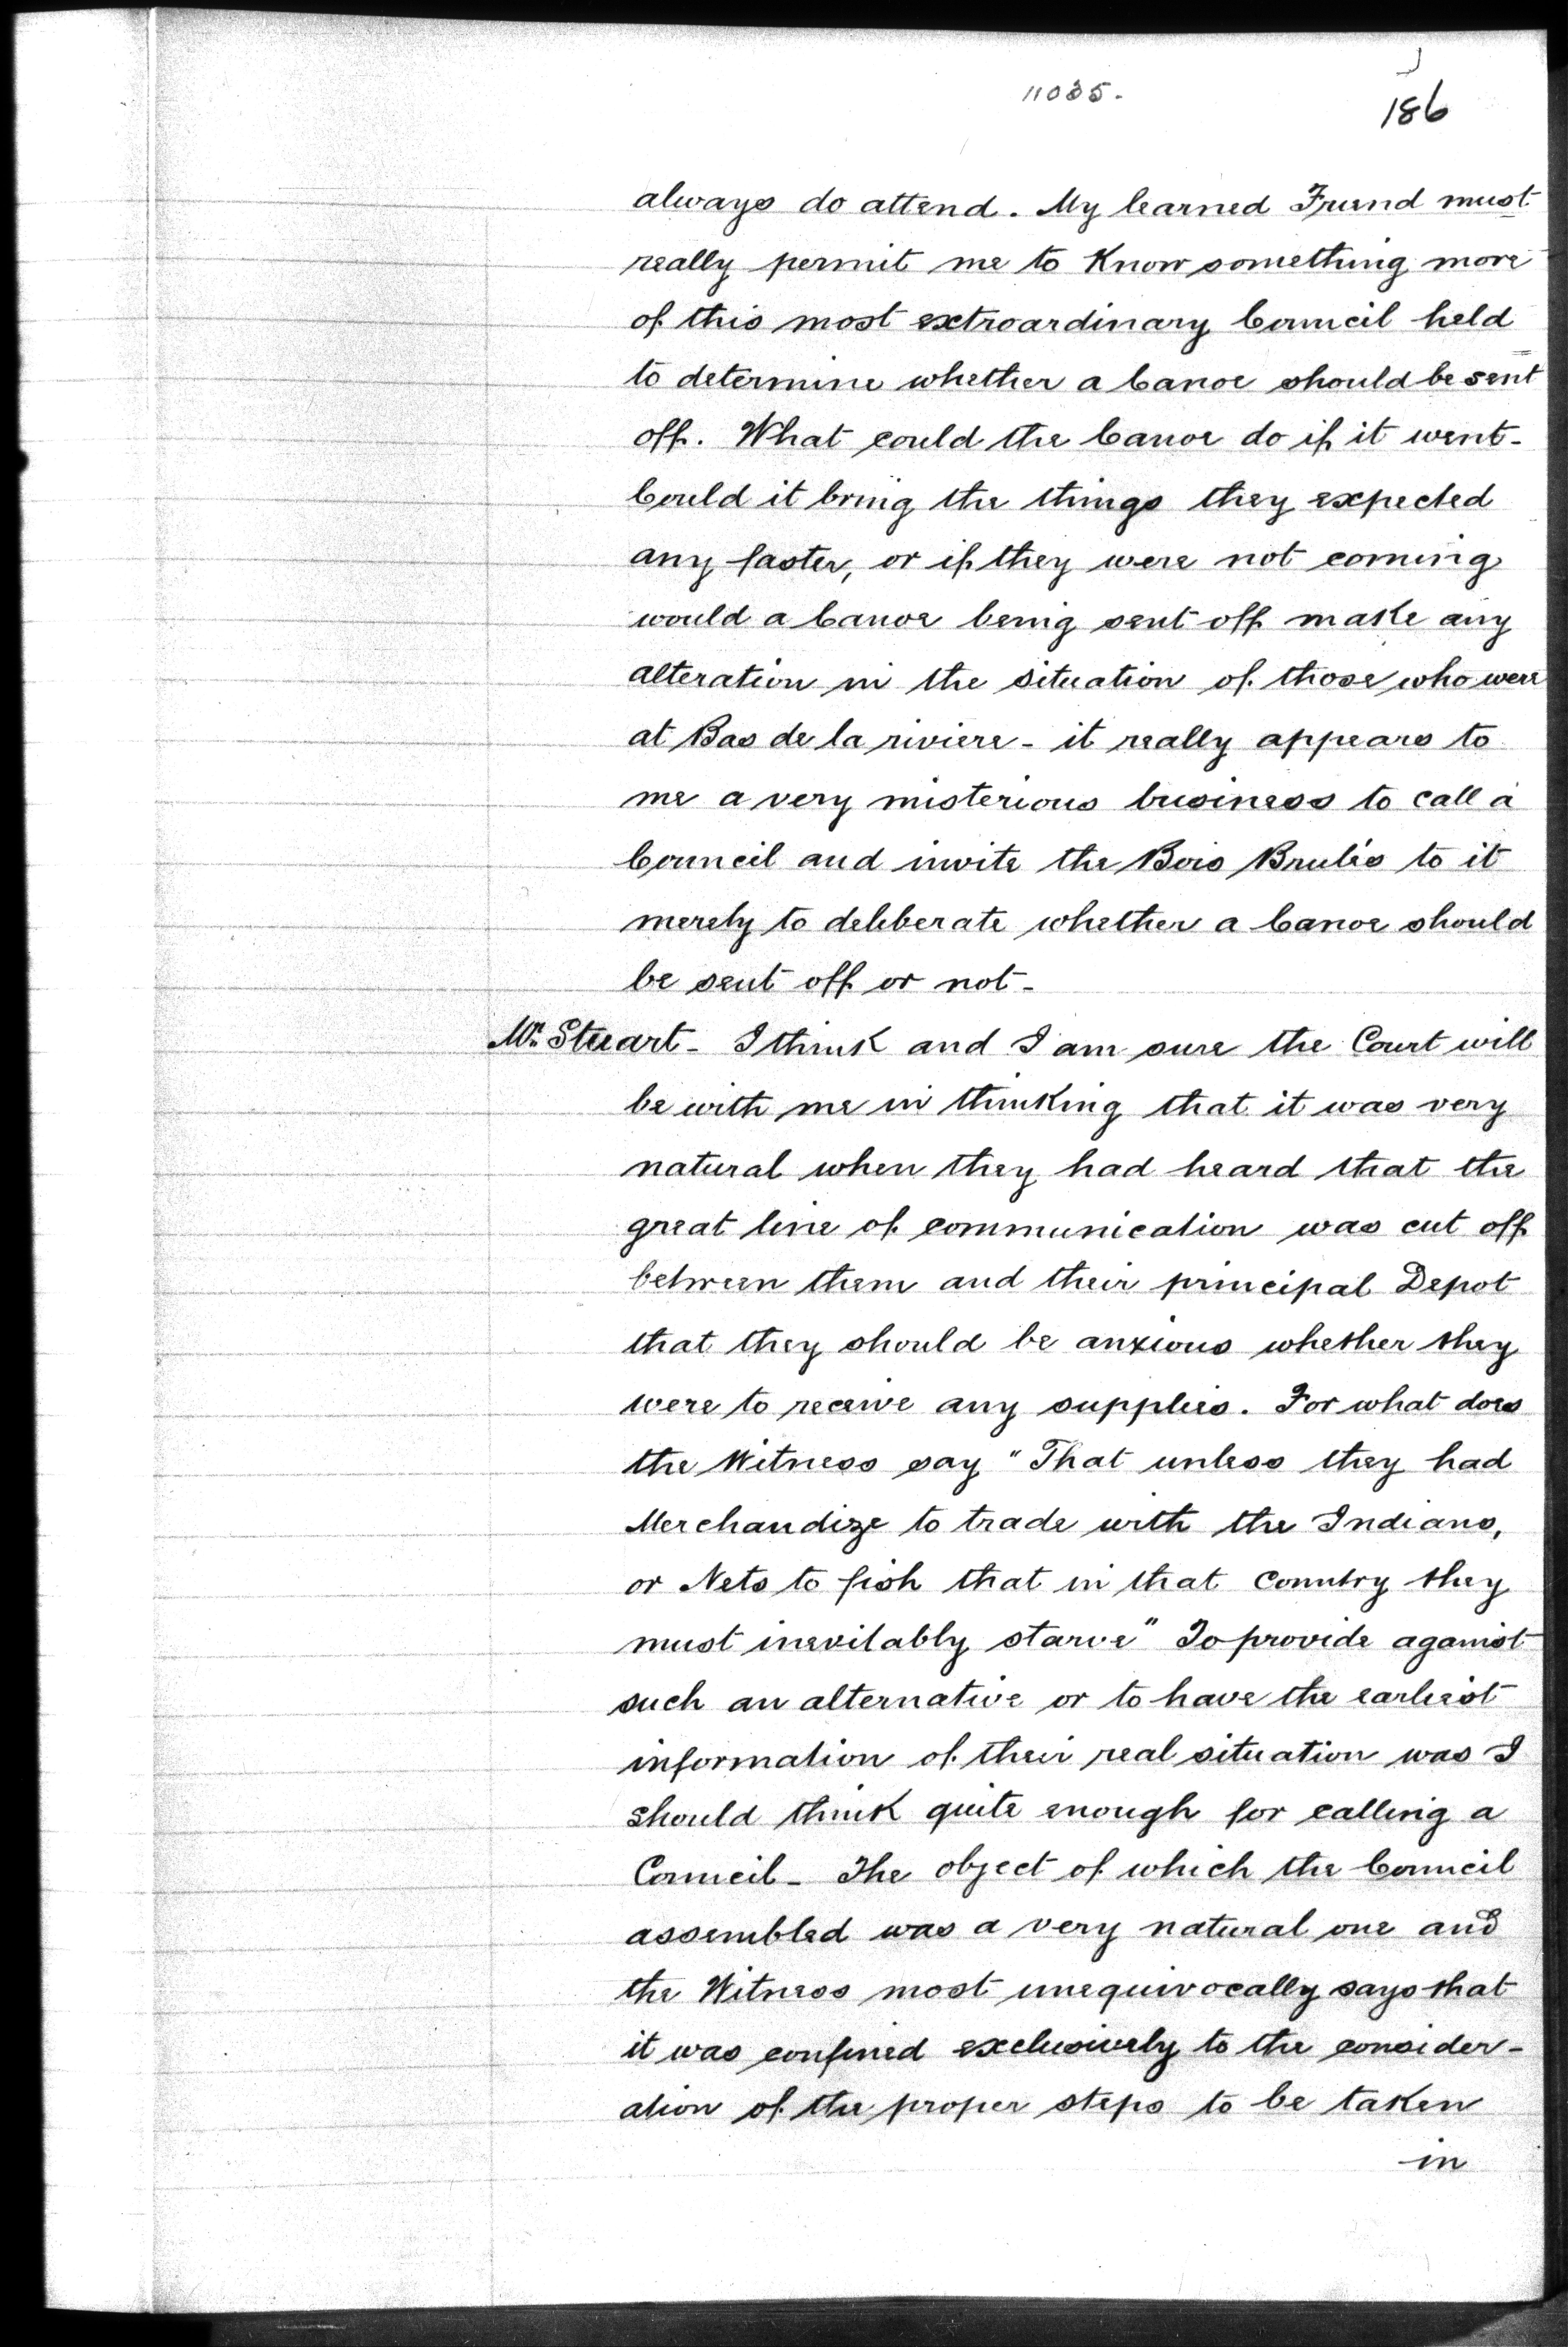 11035.
186
always do attend. My learned Friend must
really permit me to Know something more
of this most extroardinary Council held
to determine whether a Canoe should be sent
off. What could the Canoe do if it went-
Could it bring the things they expected
any faster, or if they were not coming
would a Canoe being sent off make any
alteration in the situation of those who were
at Bas de la riviere - it really appears to
me a very misterious business to call a
Council and invite the Bois Brulés to it
merely to deliberate whether a Canoe should
be sent off or not -
Mr. Stuart - I think and I am sure the Court will
be with me in thinking that it was very
natural when they had heard that the
great line of communication was cut off
between them and their principal Depot
that they should be anxious whether they
were to receive any supplies. For what does
the Witness say "That unless they had
Merchandize to trade with the Indians,
or Nets to fish that in that Country they
must inevitably starve" To provide against
such an alternative or to have the earliest
information of their real situation was I
should think quite enough for calling a
Council - The object of which the Council
assembled was a very natural one and
the Witness most unequivocally says that
it was confined exclusively to the consider-
ation of the proper steps to be taken
in